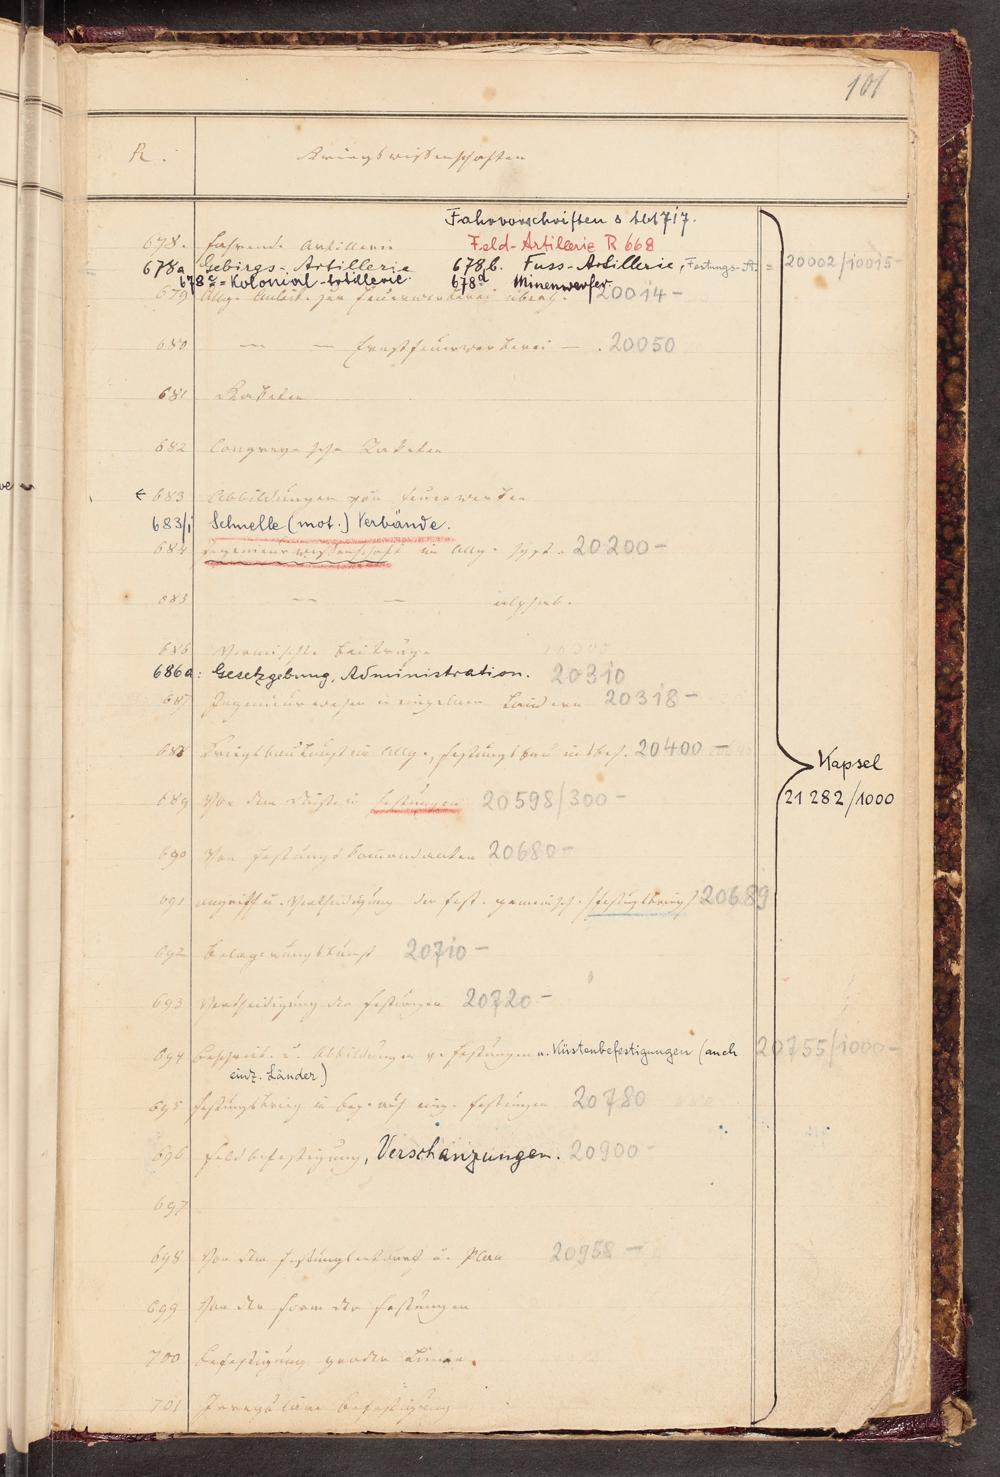 101
R. Kriegswissenschaften
Fahrvorschriften s 161717.
678. fahrende Artillerie Feld-Artillerie R 668
678a Gebirgs-Artillerie 678b. Fuss-Artillerie, Festungs-A. = 20002/10015-
678c = Kolonial-Artillerie 678d Minenwerfer
679 Allg. Anleit. zur Feuerwerkerei überh. 20014-
680 — — Ernstfeuerwerkerei — . 20050
681 Raketen
682 Congreve'sche Raketen
683 Abbildungen von Feuerwerken
683/1 Schnelle (mot.) Verbände.
684 Ingenieurwissenschaft im Allg. syst. 20200-
685 — — alphab.
686 Vermischte Beiträge 20300
686a: Gesetzgebung, Administration. 20310
687 Ingenieurwesen in einzelnen Ländern 20318-
688 Kriegsbaukunst im Allg., Festungsbau insbes. 20400-
Kapsel
689 Von dem Dienste in Festungen 20598/300-
21282/1000
690 Von Festungskommandanten 20680-
691 Angriff u. Vertheidigung der Fest. gemeinsch. (Festungskrieg) 20689
692 Belagerungskunst 20710-
693 Vertheidigung der Festungen 20720-
694 Beschreib. u. Abbildungen v. Festungen u. Küstenbefestigungen (auch 20755/1000-
einz. Länder)
695 Festungskrieg in Bez. auf einz. Festungen 20780
696 Feldbefestigung, Verschanzungen. 20900-
697
698 Von dem Festungsentwurf u. Plan 20958-
699 Von der Form der Festungen
700 Befestigung grader Linien.
701 Irreguläre Befestigung